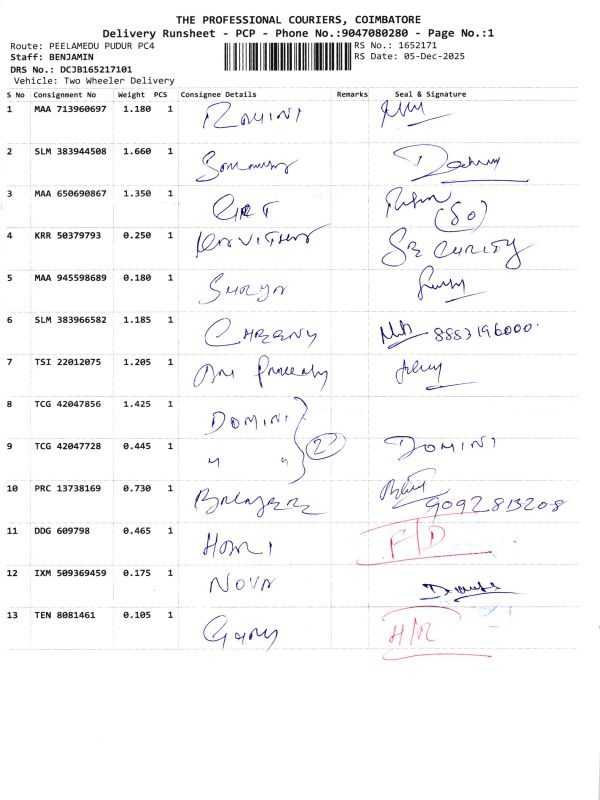 THE PROFESSIONAL COURIERS, COIMBATORE
Delivery Runsheet - PCP - Phone No.:9047080280 - Page No.:1
Route: PEELAMEDU PUDUR PC4 RS No.: 1652171
Staff: BENJAMIN RS Date: 05-Dec-2025
DRS No.: DCJB165217101
Vehicle: Two Wheeler Delivery
S No Consignment No Weight PCS Consignee Details Remarks Seal & Signature
1 MAA 713960697 1.180 1
2 SLM 383944508 1.660 1
3 MAA 650690867 1.350 1 (So)
4 KRR 50379793 0.250 1 SECURITY
5 MAA 945598689 0.180 1 SURYA
6 SLM 383966582 1.185 1 8883196000.
7 TSI 22012075 1.205 1
8 TCG 42047856 1.425 1 DOMINI
9 TCG 42047728 0.445 1 " " 2 DOMINI
10 PRC 13738169 0.730 1 9092813208
11 DDG 609798 0.465 1 F/D
12 IXM 509369459 0.175 1 NOVA
13 TEN 8081461 0.105 1 H/R